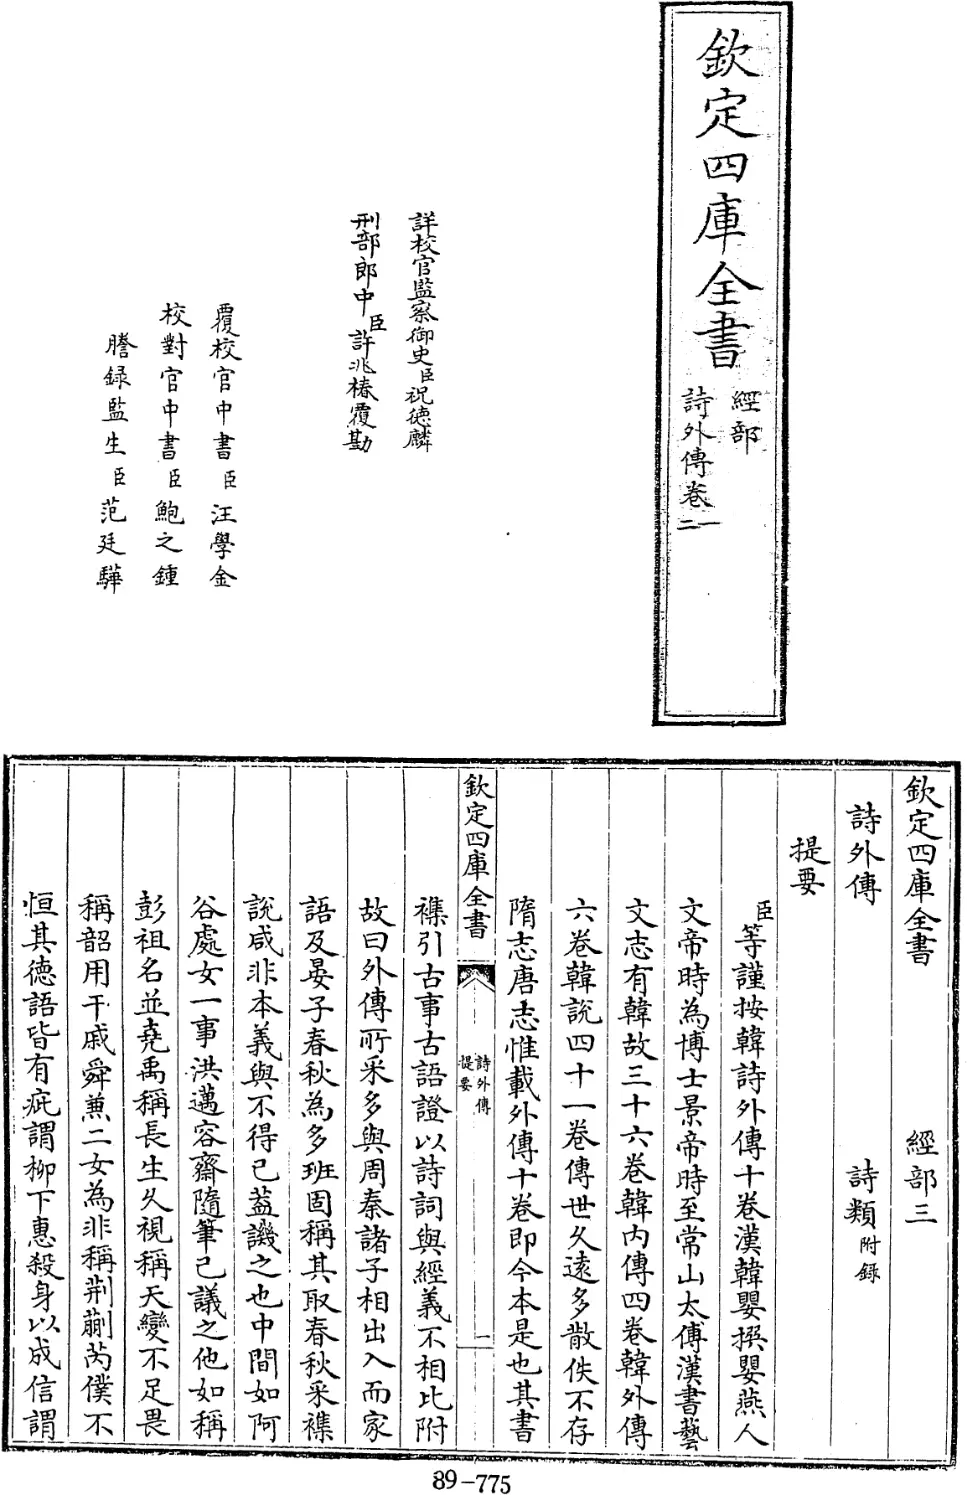 欽定四庫全書
經部
詩外傳卷一
二
詳校官監察御史臣祝德麟
刑部郎中臣許兆椿覆勘
覆校官中書臣汪學金
校對官中書臣鮑之鍾
謄録監生臣范廷驊
欽定四庫全書 經部三
詩外傳 詩類附録
提要
臣等謹按韓詩外傳十卷漢韓嬰撰嬰燕人
文帝時為博士景帝時至常山太傅漢書藝
文志有韓故三十六卷韓内傳四卷韓外傳
六卷韓說四十一卷傳世久遠多散佚不存
隋志唐志惟載外傳十卷即今本是也其書
欽定四庫全書
詩外傳
提要
一
襍引古事古語證以詩詞與經義不相比附
故曰外傳所采多與周秦諸子相出入而家
語及晏子春秋為多班固稱其取春秋采襍
說咸非本義與不得已蓋譏之也中間如阿
谷處女一事洪邁容齋隨筆已議之他如稱
彭祖名並堯禹稱長生久視稱天變不足畏
稱韶用干戚舜兼二女為非稱荆蒯芮僕不
恒其德語皆有疵謂柳下惠殺身以成信謂
89-775